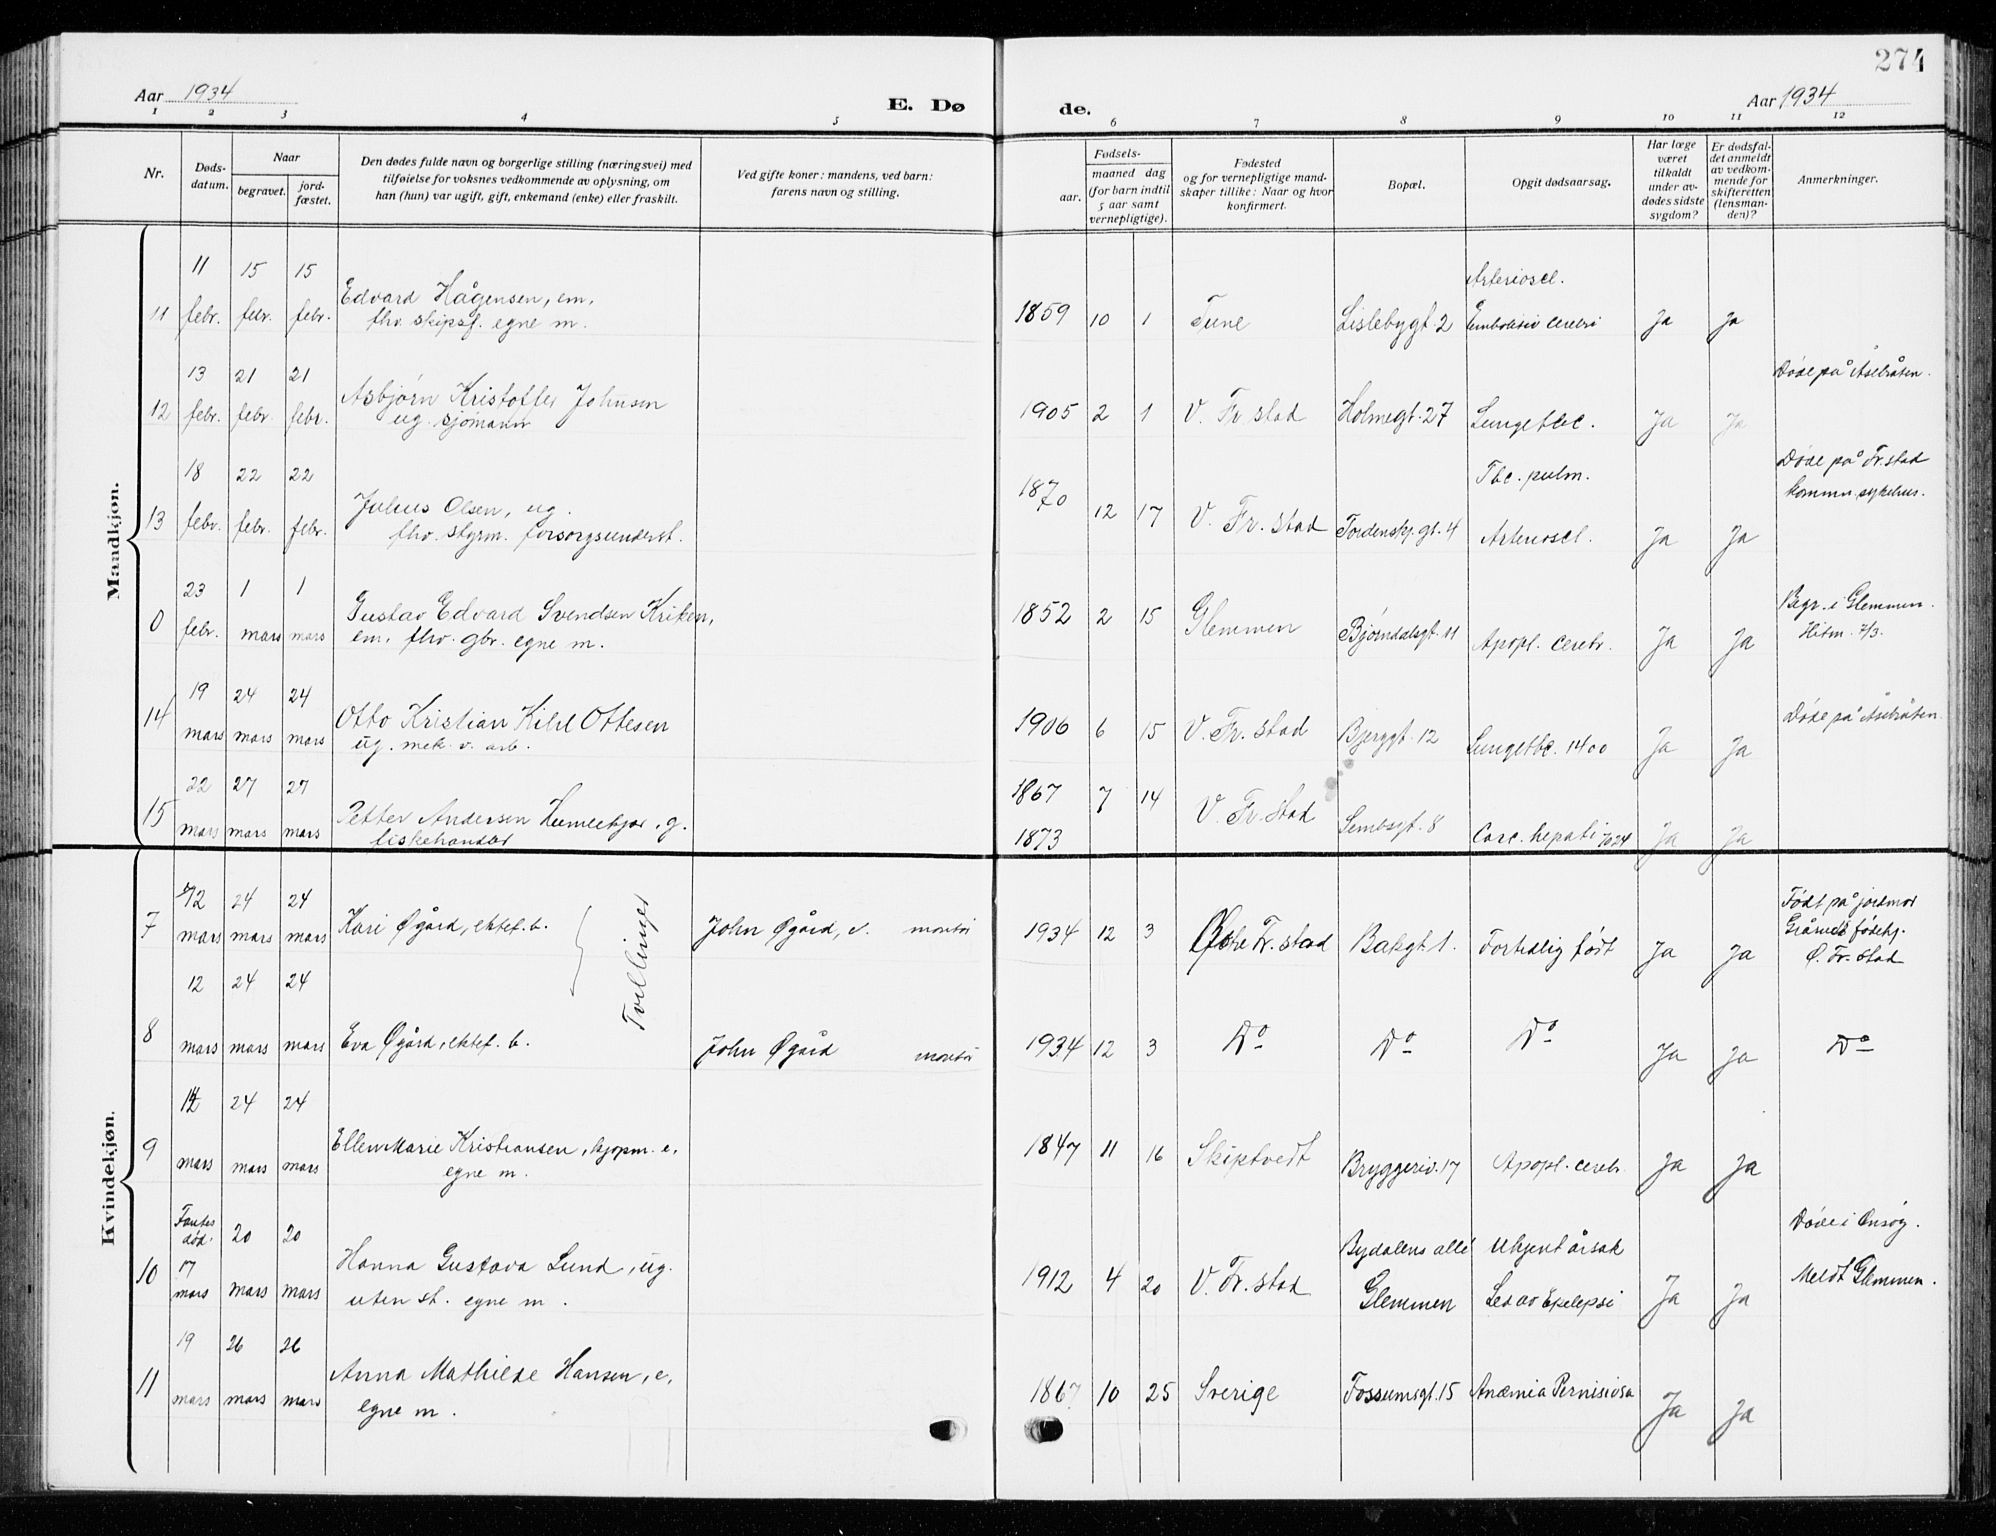 274
Aar 1934
E. Dø
de.
Aar 1934
1 2 3 4 5 6 7 8 9 10 11 12
Nr.
Døds-
datum.
Naar
begravet.
jord-
fæstet.
Den dødes fulde navn og borgerlige stilling (næringsvei) med
tilføielse for voksnes vedkommende av oplysning, om
han (hun) var ugift, gift, enkemand (enke) eller fraskilt.
Ved gifte koner: mandens, ved barn:
farens navn og stilling.
Fødsels-
aar.
maaned dag
(for barn indtil
5 aar samt
vernepligtige).
Fødested
og for vernepligtige mand-
skaper tillike: Naar og hvor
konfirmert.
Bopæl.
Opgit dødsaarsag.
Har læge
været
tilkaldt
under av-
dødes sidste
sygdom?
Er dødsfal-
det anmeldt
av vedkom-
mende for
skifteretten
(lensman-
den)?
Anmerkninger.
Maadkjøn.
11 11 febr. 15 febr. 15 febr. Edvard Hågensen, em,
fhv. skipsf. egne m.
1859 10 1 Tune Lislebygt. 2 Arterioscl.
Emboliseo cerebri Ja Ja
12 13 febr. 21 febr. 21 febr. Asbjørn Kristoffer Johnsen
ug. sjømann
1905 2 1 V. Fr. stad Holmegt. 27 Lungetbc. Ja Ja Døde på Åsebråten.
13 18 febr. 22 febr. 22 febr. Julius Olsen, ug.
fhv. styrm. forsorgsunderst.
1870 12 17 V. Fr. stad Tordenskj. gt. 4 Tbc. pulm.
Arterioscl. Ja Ja Døde på Fr. stad
kommu. sykehus.
0 23 febr. 1 mars 1 mars Gustav Edvard Svendsen Kriken,
em, fhv. gbr. egne m.
1852 2 15 Glemmen Bjørndalsgt. 11 Apopl. cerebr. Ja Ja Begr. i Glemmen.
Hitm. 2/3.
14 19 mars 24 mars 24 mars Otto Kristian Kihl Ottesen
ug. mek. v. arb.
1906 6 15 V. Fr. stad Bjerggt. 12 Lungetbc. 1400 Ja Ja Døde på Åsebråten
15 22 mars 27 mars 27 mars Petter Andersen Humlekjær, g.
fiskehandler
1867 7 14 V. Fr. stad Sembsgt. 8 Carc. hepati Ja Ja
1873
Kvindekjøn.
7 12 mars 24 mars 24 mars Kari Øgård, ektef. b. John Øgård, v. montør
1934 12 3 Østre Fr. stad Bakgt 1. Fortidlig født Ja Ja Født på jordmor
fødehj.
Ø. Fr. stad
Tvillinger
8 12 mars 24 mars 24 mars Eva Øgård, ektef. b. John Øgård montør
1934 12 3 Do Do Do Ja Ja Do
9 12 mars 24 mars 24 mars Ellen Marie Kristiansen, kjøpm. e,
egne m.
1847 11 16 Skiptvedt Bryggeriv. 17 Apopl. cerebr. Ja Ja
10 Funtes
død.
17 mars 20 mars 20 mars Hanna Gustava Lund, ug.
uten st. egne m.
1912 4 20 V. Fr. stad Bydalens allé
Glemmen Ukjent årsak
Led av Epelepsi Ja Ja Døde i Onsøy.
Meldt Glemmen.
11 19 mars 26 mars 26 mars Anna Mathilde Hansen, e,
egne m.
1867 10 25 Sverige Fossumsgt. 15 Anæmia Pernisiosa Ja Ja